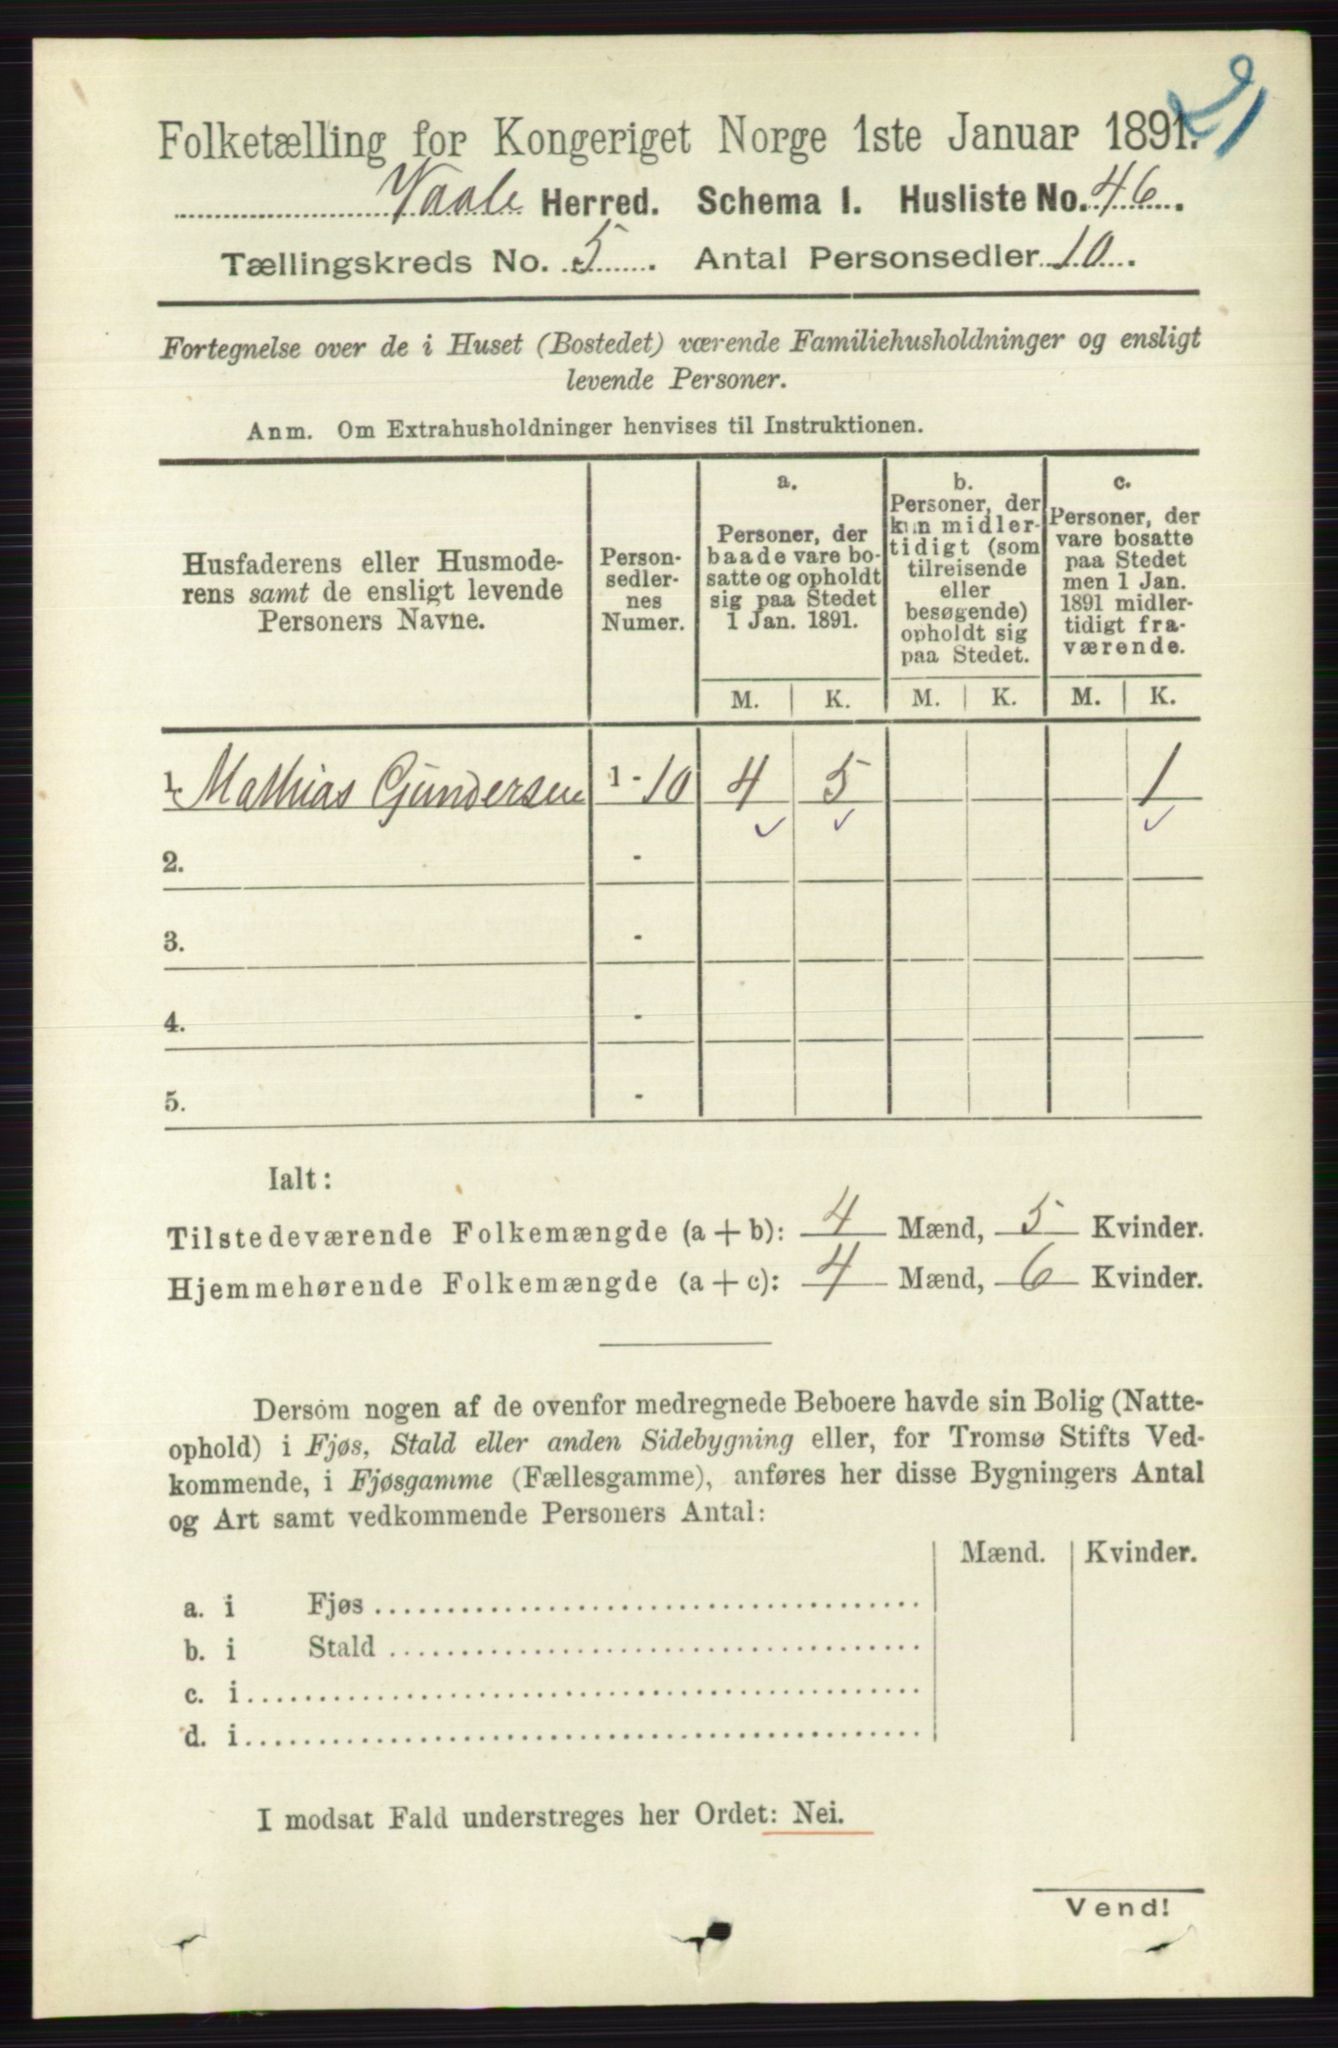 21
Folketælling for Kongeriget Norge 1ste Januar 1891.
Vaale Herred. Schema 1. Husliste No. 46.
Tællingskreds No. 5. Antal Personsedler 10.
Fortegnelse over de i Huset (Bostedet) værende Familiehusholdninger og ensligt
levende Personer.
Anm. Om Extrahusholdninger henvises til Instruktionen.
Husfaderens eller Husmode-
rens samt de ensligt levende
Personers Navne.
Person-
sedler-
nes
Numer.
a.
Personer, der
baade vare bo-
satte og opholdt
sig paa Stedet
1 Jan. 1891.
b.
Personer, der
kun midler-
tidigt (som
tilreisende
eller
besøgende)
opholdt sig
paa Stedet.
c.
Personer, der
vare bosatte
paa Stedet
men 1 Jan.
1891 midler-
tidigt fra-
værende.
M. K. M. K. M. K.
1. Mathias Gundersen 1 - 10 4 5 1
2. -
3. -
4. -
5. -
Ialt:
Tilstedeværende Folkemængde (a + b): 4 Mænd, 5 Kvinder.
Hjemmehørende Folkemængde (a + c): 4 Mænd, 6 Kvinder.
Dersom nogen af de ovenfor medregnede Beboere havde sin Bolig (Natte-
ophold) i Fjøs, Stald eller anden Sidebygning eller, for Tromsø Stifts Ved-
kommende, i Fjøsgamme (Fællesgamme), anføres her disse Bygningers Antal
og Art samt vedkommende Personers Antal:
Mænd. Kvinder.
a. i Fjøs
b. i Stald
c. i
d. i
I modsat Fald understreges her Ordet: Nei.
Vend!